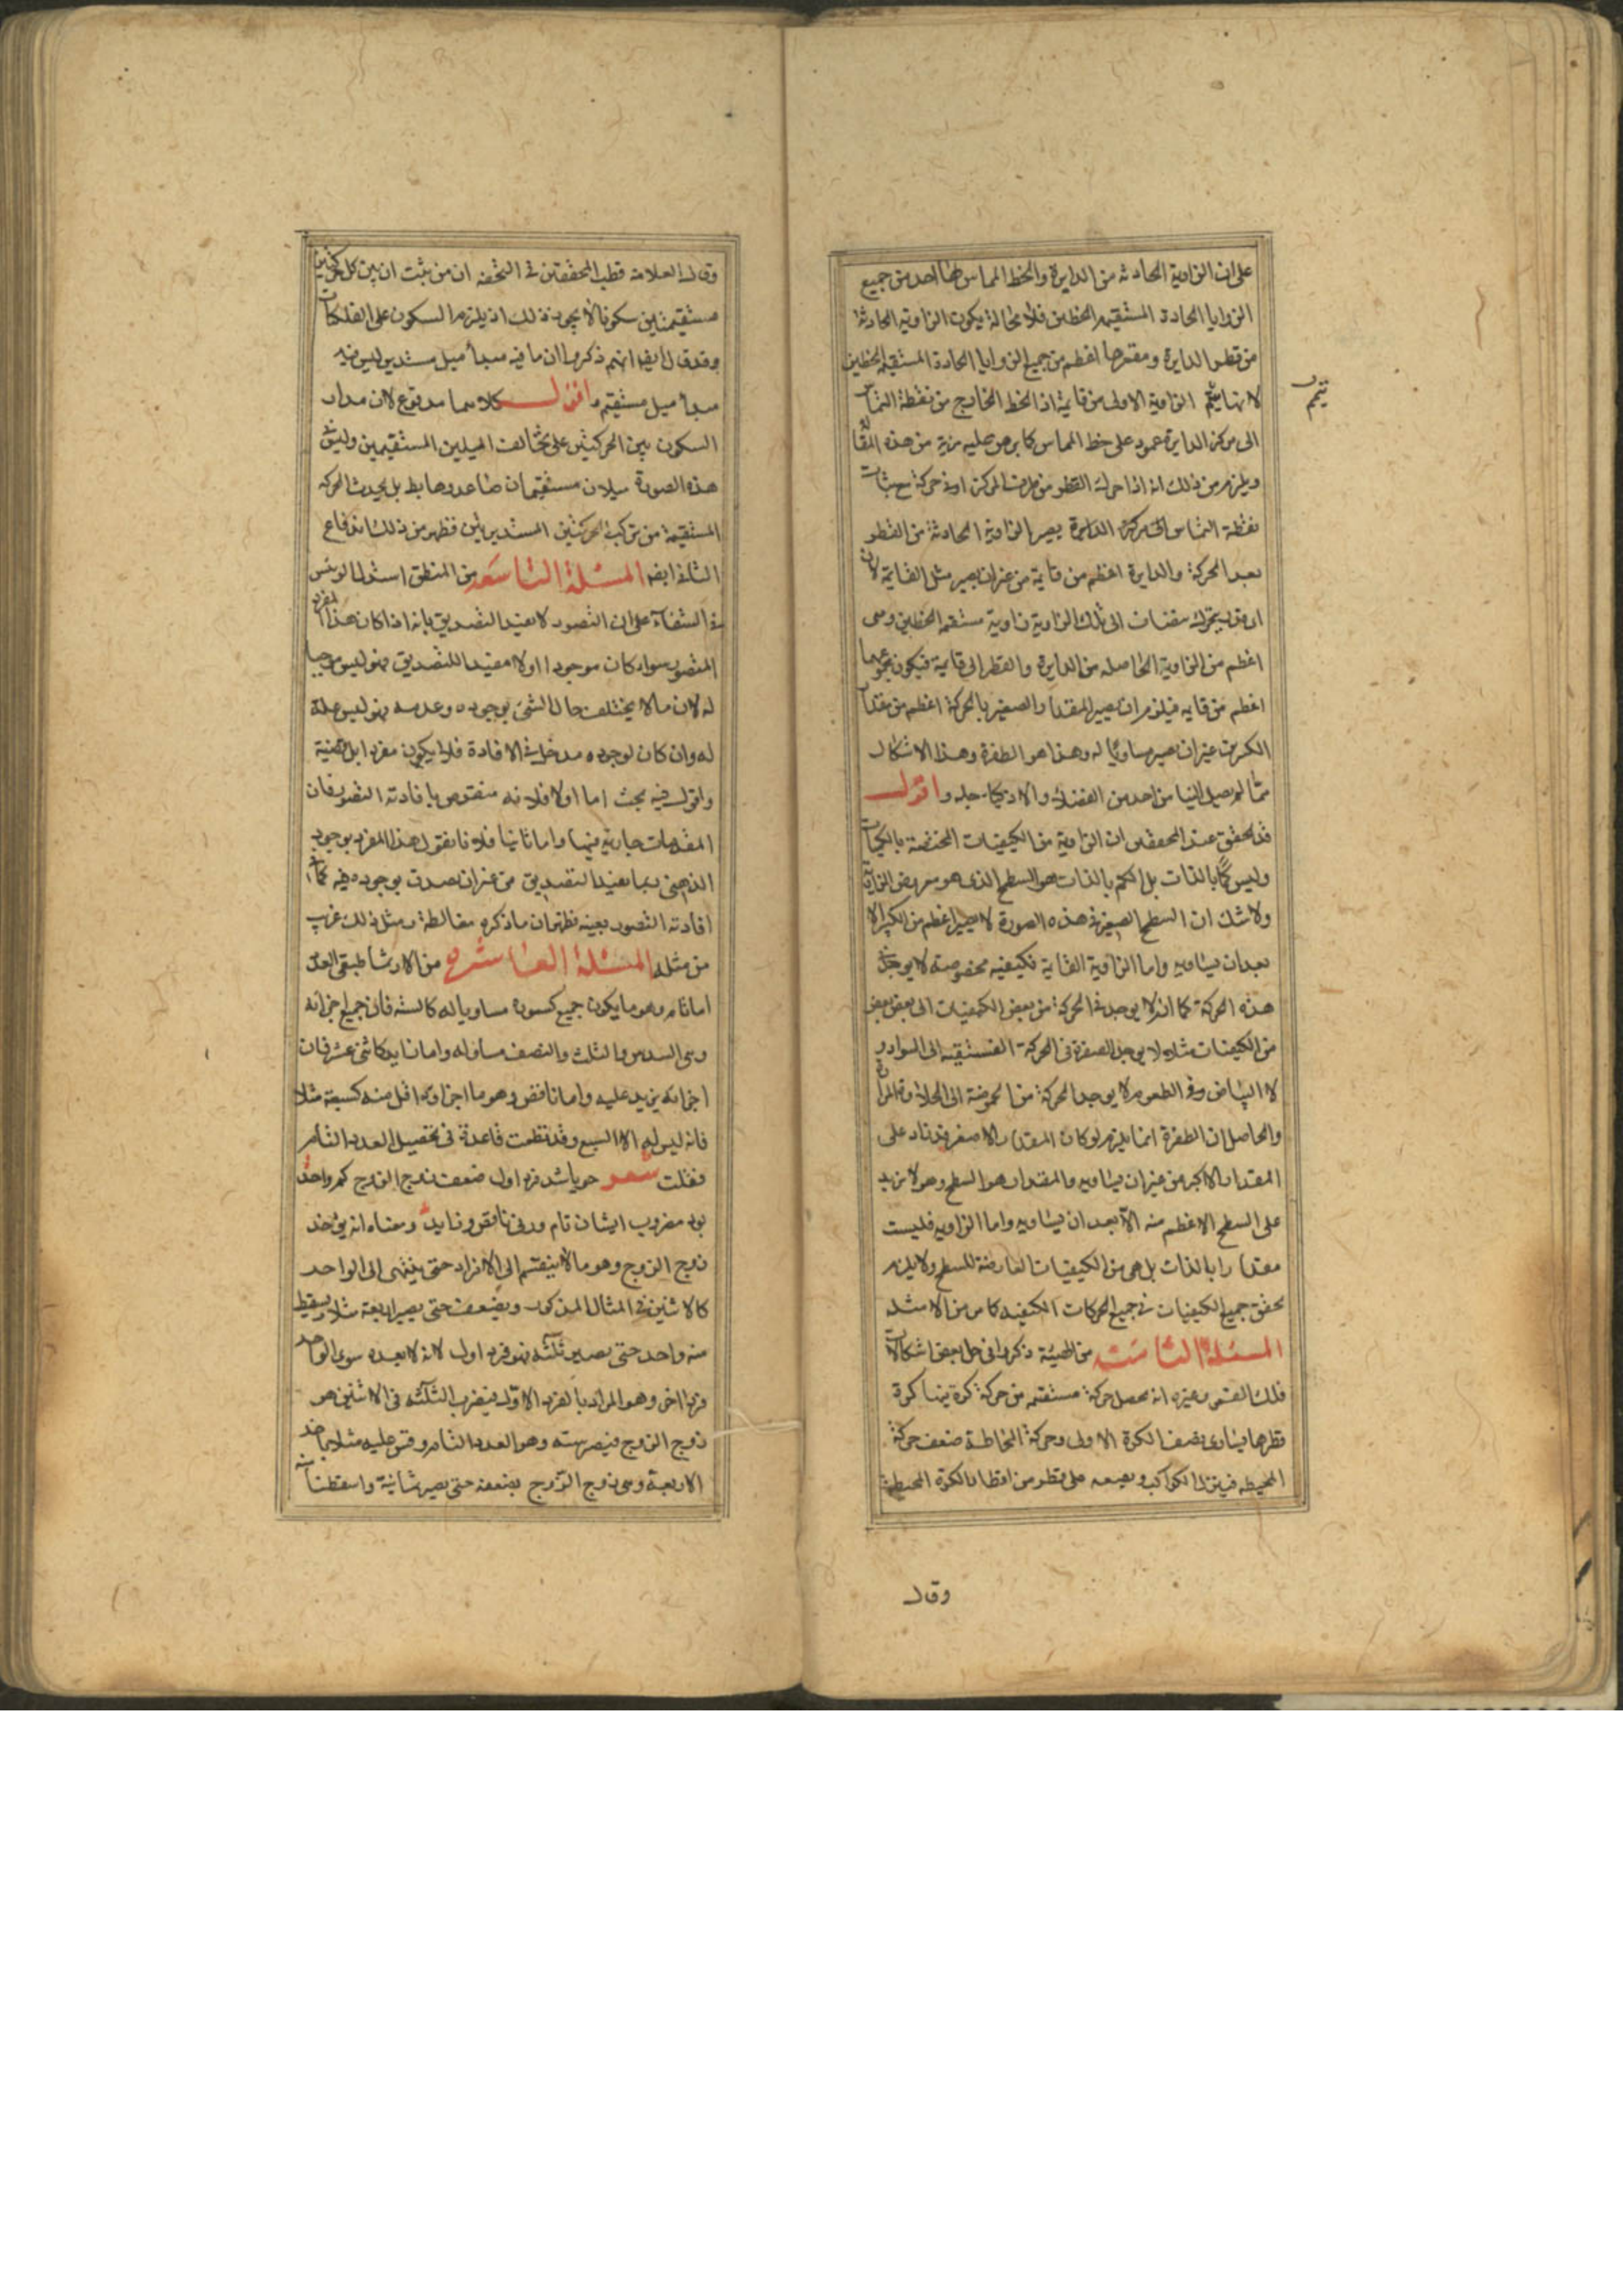 على ان الزاوية الحادثه من الدايرة والخط المماس لها احد من جميع
الزوايا الحادة المستقيمه الخطين فلا محالة يكون الزاويه الحادثه
من قطر الدايرة ومقعرها اعظم من جميع الزوايا الحادة المستقيمه الخطين
لانها يتمم الزاوية الاولى من قايمة اذا الخط الخارج من نقطة التماس
الى مركز الدايرة عمود على خط المماس كما برهن عليه من هذه المقالة
ويلزم من ذلك انه اذا حرك القطر من طرف المركز اونى حركة مع ثبات
نقطة التماس الدايرة يصير الزاوية الحادثة من القطر
بعد الحركة والدايرة اعظم من قايمة من غير ان يصير مثل القايمة لان
ال تلك الزاوية زاوية مستقيمه الخطين وهى
اعظم من الزاوية الحاصله من الدايرة والقطر الى قايمة فيكون مجموعهما
اعظم من قايمه فيلزم ان يصير المقدار الصغير بالحركة اعظم من مقدار
الكبير من غير ان يصير مساويًا له وهذا هو الطفرة وهذا الاشكال
مما لم يصل الينا من احد من الفضلاء والاذكياء حله واقول
قد تحقق عند المحققين ان الزاوية من الكيفيات المختصة بالكميات
وليس كمًّا بالذات بل الكم بالذات هو السطح الذى هو معروض الزاوية
ولا شك ان السطح الصغير فى هذه الصورة لا يصير اعظم من الكبير الا
بعد ان يساويه واما الزاوية القايمة فكيفيه مخصوصة لا يوجد فى
هذه الحركة كما انه لا يوجد فى الحركة من بعض الكيفيات الى بعض بعض
من الكيفيات مثلا لا يوجد الصفرة فى الحركة الفستقيه الى السواد و
لا البياض وفى الطعوم لا يوجد الحركة من الحموضة الى الحلاوة المرارة
والحاصل ان الطفرة انما يلزم لو كان المقدار الاصغر قد زاد على
المقدار الاكبر من غير ان يساويه والمقدار هو السطح وهو لا يزيد
على السطح الاعظم منه الا بعد ان يساويه واما الزاويه فليست
مقدارا بالذات بل هى من الكيفيات العارضة للسطح ولا يلزم
تحقق جميع الكيفيات فى جميع الحركات الكيفيه كما مر من الامثله
المسئلة الثامنه من الهيئة ذكروا فى حل بعض اشكالات
فلك القمر وغيره انه يحصل حركة مستقيمه من حركة كرة ينهاكرة
قطرها يساوى نصف الكرة الاولى وحركة المحاطة ضعف حركة
المحيطه فينزل الكواكب ويصعد على قطر من اقطار الكرة المحيطة
يتمم
وقال
وقال العلامه قطب المحققين فى التحفه ان من يثبت ان بين كل حركتين
مستقيمتين سكونا لا يجوز ذلك اذ يلزم السكون على الفلكيات
وقد قال ايضا انهم ذكروا ان ما فيه مبدأ ميل مستدير ليس فيه
مبدأ ميل مستقيم واقول كلاهما مدفوع لان مدار
السكون بين الحركتين على تخالف الميلين المستقيمين وليس فى
هذه الصورة ميلان مستقيمان صاعد وهابط بل يحدث الحركه
المستقيمة من تركب الحركتين المستديرتين فظهر من ذلك اندفاع
الثانى ايضا المسئلة التاسعه من المنطق استدل الرئيس
فى الشفاء على ان التصور لا يفيد التصديق بانه اذا كان هذا المفرد
المتصور سواء كان موجودا اولا مفيدا للتصديق فهو ليس موجبا
له لان ما لا يختلف حال الشئ بوجوده وعدمه فهو ليس علة
له وان كان لوجوده مدخل فى الافادة فلا يكون مفردا بل قضية
واقول فيه بحث اما اولا فلانه منقوض بافادته التصور فان
المقدمات جارية فيها واما ثانيا فلانا نقول هذا المفرد بوجوده
الذهنى ربما يفيد التصديق من غير ان يصدق بوجوده فيه كما فى
افادته التصور بعينه فظهر ان ما ذكره مغالطة ومثل ذلك غريب
من مثله المسئلة العاشره من الارثماطيقى العدد
اما تام وهو ما يكون جميع كسوره مساويا له كالستة فان جميع اجزائه
وهى السدس والثلث والنصف مساو له واما زايد كاثنى عشر فان
اجزائه يزيد عليه واما ناقص وهو ما اجزاؤه اقل منه كسبعة مثلا
فانه ليس له الا السبع وقد نظمت قاعدة فى تحصيل العدد التام
فقلت شعر چو باشد فرد اول ضعف زوج الزوج كم واحد
بود مضروب ايشان تام ورنى ناقص و زايد ومعناه انه يؤخذ
زوج الزوج وهو ما لا ينقسم الى الافراد حتى ينتهى الى الواحد
كالاثنين فى المثال المذكور ويضعف حتى يصير اربعة مثلا ويسقط
منه واحد حتى يصير ثلثه فهو فرد اول لانه لا يعده سوى الواحد
فرد اخر وهو المراد بالفرد الاول فيضرب الثلثه فى الاثنين هو
زوج الزوج فيصير سته وهو العدد التام وقس عليه مثلا ياخذ
الاربعة وهى زوج الزوج يضعفه حتى يصير ثمانية واسقطنا منه